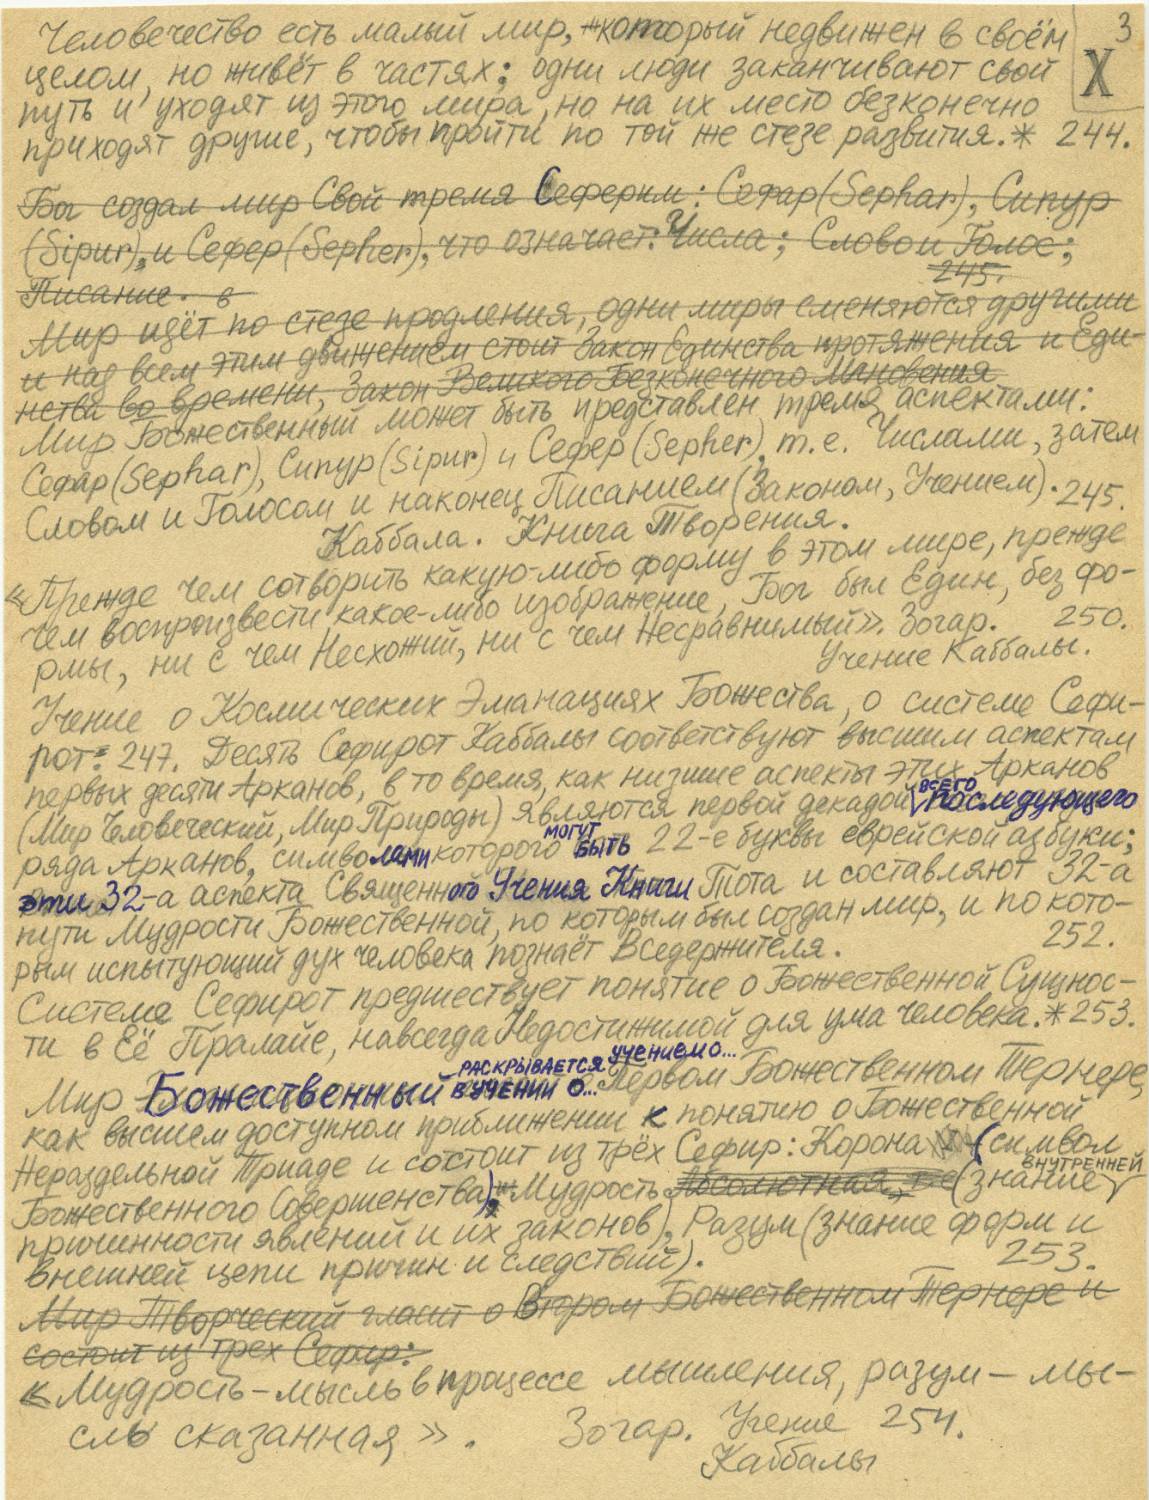 3
X
Человечество есть малый мир, который недвижен в своём
целом, но живёт в частях; одни люди заканчивают свой
путь и уходят из этого мира, но на их место безконечно
приходят другие, чтобы пройти по той же стезе развития.* 244.
Бог создал мир Свой тремя Сеферим: Сефар (Sephar), Сипур
(Sipur), и Сефер (Sepher), что означает: Числа; Слово и Голос;
Писание. в 245.
Мир идёт по стезе продления, одни миры сменяются другими
и над всем этим движением стоит Закон Единства протяжения и Еди-
нства во времени, Закон Великого Безконечного Мгновения
Мир Божественный может быть представлен тремя аспектами:
Сефар (Sephar), Сипур (Sipur) и Сефер (Sepher), т.е. Числами, затем
Словом и Голосом и наконец Писанием (Законом, Учением). 245.
Каббала. Книга Творения.
«Прежде чем сотворить какую-либо форму в этом мире, прежде
чем воспроизвести какое-либо изображение, Бог был Един, без фо-
рмы, ни с чем Несхожий, ни с чем Несравнимый». Зогар. 250.
Учение Каббалы.
Учение о Космических Эманациях Божества, о системе Сефи-
рот: 247. Десять Сефирот Каббалы соответствуют высшим аспектам
первых десяти Арканов, в то время, как низшие аспекты этих Арканов
(Мир Человеческий, Мир Природы) являются первой декадой всего последующего
ряда Арканов, символами которого могут быть 22-е буквы еврейской азбуки;
эти 32-а аспекта Священного Учения Книги Тота и составляют 32-а
пути Мудрости Божественной, по которым был создан мир, и по кото-
рым испытующий дух человека познаёт Вседержителя. 252.
Системе Сефирот предшествует понятие о Божественной Сущнос-
ти в Её Пралайе, навсегда Недостижимой для ума человека.* 253.
РАСКРЫВАЕТСЯ УЧЕНИЕМ О...
Мир Божественный В УЧЕНИИ О... Первом Божественном Тернере,
как высшем доступном приближении к понятию о Божественной
Нераздельной Триаде и состоит из трёх Сефир: Корона (символ
Божественного Совершенства), Мудрость Абсолютная, (знание ВНУТРЕННЕЙ
причинности явлений и их законов), Разум (знание форм и
внешней цепи причин и следствий). 253.
Мир Творческий гласит о Втором Божественном Тернере и
состоит из трех Сефир:
«Мудрость – мысль в процессе мышления, разум – мы-
сль сказанная». Зогар. Учение 254.
Каббалы